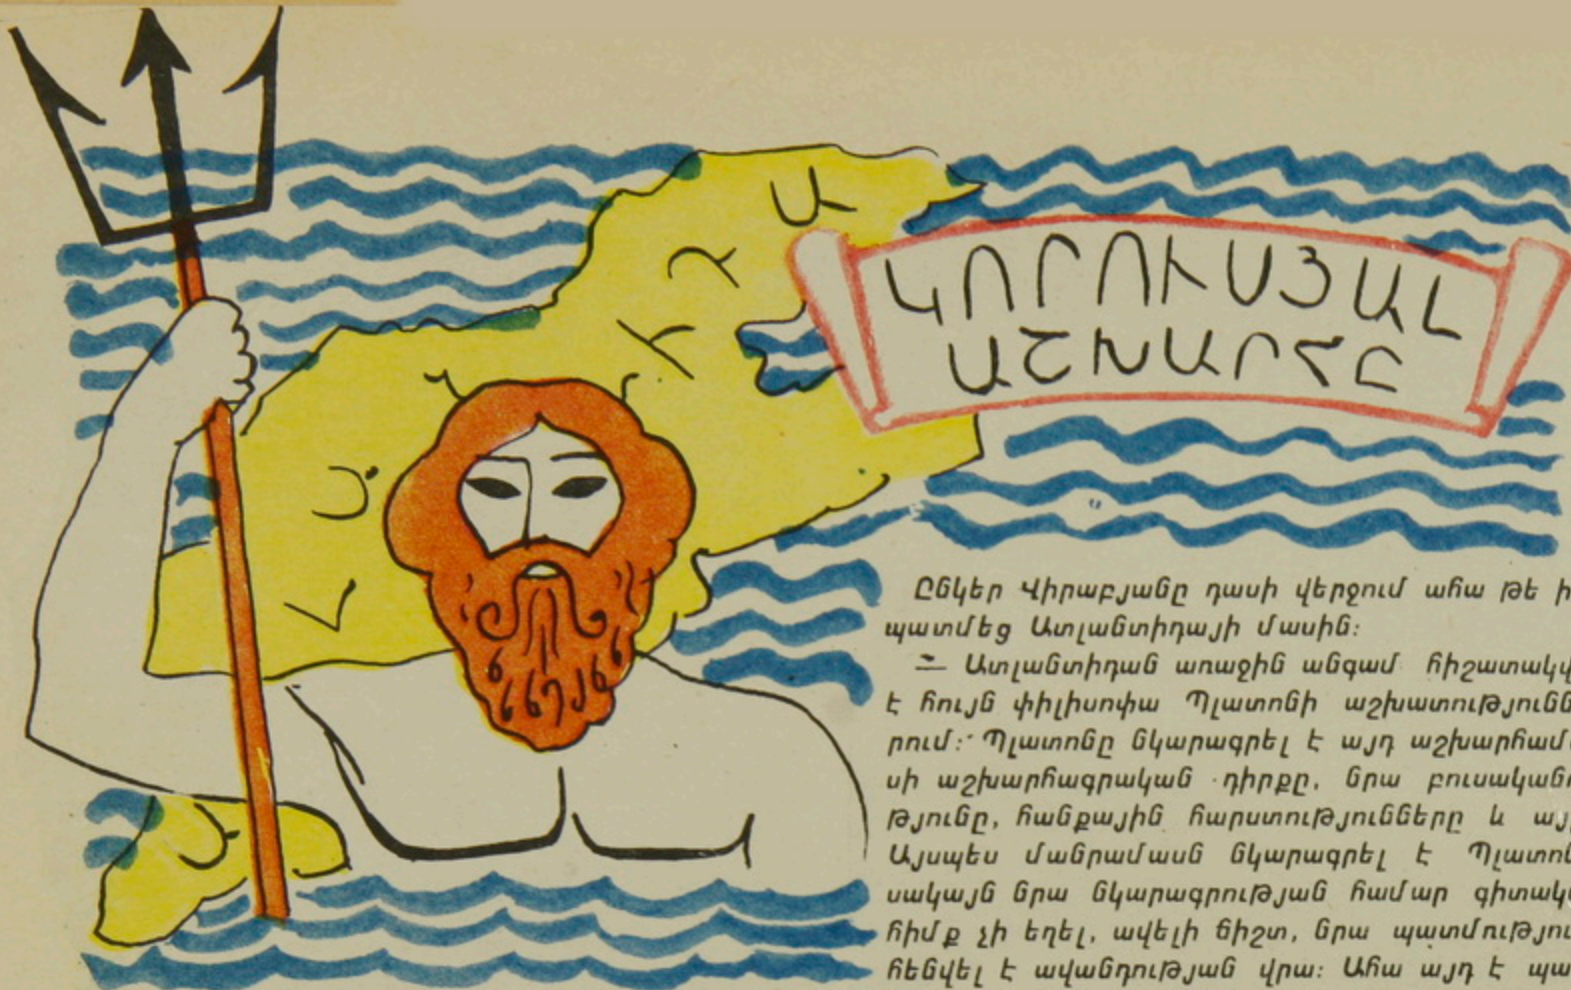 ԿՈՐՈՒՍՅԱԼ
ԱՇԽԱՐՀԸ
Ընկեր Վիրաբյանը դասի վերջում ահա թե ի
պատմեց Ատլանտիդայի մասին։
— Ատլանտիդան առաջին անգամ հիշատակվ
է հույն փիլիսոփա Պլատոնի աշխատություննե
րում։ Պլատոնը նկարագրել է այդ աշխարհամա
սի աշխարհագրական դիրքը, նրա բուսականո
թյունը, հանքային հարստությունները և այլ
Այսպես մանրամասն նկարագրել է Պլատոն
սակայն նրա նկարագրության համար գիտակա
հիմք չի եղել, ավելի ճիշտ, նրա պատմությու
հենվել է ավանդության վրա։ Ահա այդ է պա